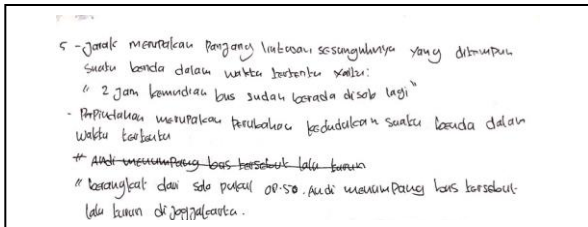 5 - Jarak merupakan panjang lintasan sesungguhnya yang ditempuh
suatu benda dalam waktu tertentu yaitu:
" 2 jam kemudian bus sudah berada di solo lagi "
- Perpindahan merupakan perubahan kedudukan suatu benda dalam
waktu tertentu
* Andi menumpang bus tersebut lalu turun
" berangkat dari solo pukul 09.50. Andi menumpang bus tersebut
lalu turun di jogjakarta.